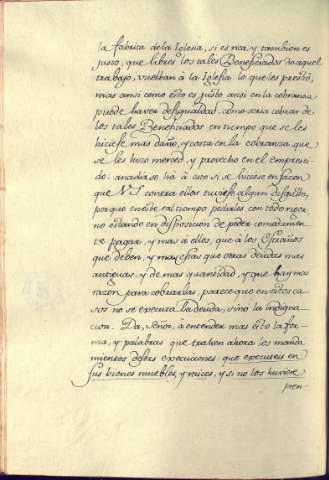 la fabrica de la Iglesia, si es rica, y tambien es
justo, que libres los tales Beneficiados de aquel
trabajo, vuelban à la Iglesia lo que les prestò,
mas ansi como esto es justo ansi en la cobranza
puede haver desigualdad, como seria cobrar de
los tales Beneficiados en tiempo que se les
hiciese mas daño, y costa en la cobranza, que
se les hizo merced, y provecho en el empresti-
do: anadirse ha à esto si se hiciese en sazon
que VS contra ellos tuviese algun desgusto,
porque en este tal tiempo pedirles con todo rigor,
no estando en disposicion de poder comodamen-
te pagar, y mas a ellos, que à los Estraños
que deben, y mas estas que otras deudas mas
antiguas, y de mas quantidad, y que hay mas
razon para cobrarlas, parece que en estos ca-
sos no se executa la deuda, sino la indigna-
cion. Da, Señor, à entender mas esto la for-
ma, y palabras que trahen ahora los manda-
mientos destas execuciones: que executeis en
sus bienes muebles, y raices, y si no los huviere
pren-